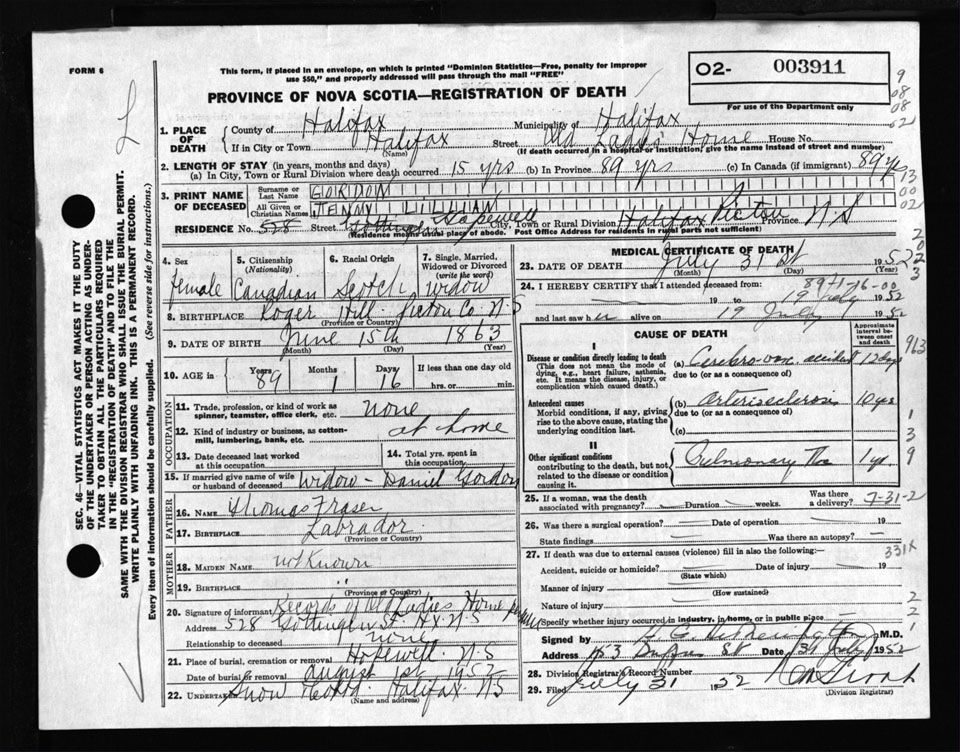 FORM 6
This form, if placed in an envelope, on which is printed "Dominion Statistics—Free, penalty for improper
use $50," and properly addressed will pass through the mail "FREE"
PROVINCE OF NOVA SCOTIA—REGISTRATION OF DEATH
O2- 003911
For use of the Department only
L
SEC. 46—VITAL STATISTICS ACT MAKES IT THE DUTY
OF THE UNDERTAKER OR PERSON ACTING AS UNDER-
TAKER TO OBTAIN ALL THE PARTICULARS REQUIRED
IN THE "REGISTRATION OF DEATH" AND TO FILE THE
SAME WITH THE DIVISION REGISTRAR WHO SHALL ISSUE THE BURIAL PERMIT.
WRITE PLAINLY WITH UNFADING INK. THIS IS A PERMANENT RECORD.
Every item of information should be carefully supplied. (See reverse side for instructions.)
1. PLACE OF DEATH
County of Halifax Municipality of Halifax
If in City or Town Halifax (Name) Street Old Lady's Home House No.
(If death occurred in a hospital or institution, give the name instead of street and number)
2. LENGTH OF STAY (in years, months and days)
(a) In City, Town or Rural Division where death occurred 15 yrs (b) In Province 89 yrs (c) In Canada (if immigrant) 89 yrs
3. PRINT NAME OF DECEASED
Surname or Last Name GORDON
All Given or Christian Names JENNY LILLIAN
RESIDENCE No. 528 Street Gottingen Hopewell City, Town or Rural Division Halifax Pictou Province N S
(Residence means usual place of abode. Post Office Address for residents in rural parts not sufficient)
4. Sex Female
5. Citizenship (Nationality) Canadian
6. Racial Origin Scotch
7. Single, Married, Widowed or Divorced (write the word) Widow
8. BIRTHPLACE Roger Hill Pictou Co. N-S
(Province or Country)
9. DATE OF BIRTH June 15th 1863
(Month) (Day) (Year)
10. AGE in Years 89 Months 1 Days 16 If less than one day old hrs. or min.
OCCUPATION
11. Trade, profession, or kind of work as spinner, teamster, office clerk, etc. none
12. Kind of industry or business, as cotton-mill, lumbering, bank, etc. at home
13. Date deceased last worked at this occupation
14. Total yrs. spent in this occupation
15. If married give name of wife or husband of deceased Widow - Daniel Gordon
FATHER
16. NAME Thomas Fraser
17. BIRTHPLACE Labrador
(Province or Country)
MOTHER
18. MAIDEN NAME not Known
19. BIRTHPLACE "
(Province or Country)
20. Signature of informant Records of Old Ladies Home
Address 528 Gottingen St. Hx N-S
Relationship to deceased none
21. Place of burial, cremation or removal Hopewell N-S
Date of burial or removal August 1st 1952
22. Undertaker Snow Halifax NS
(Name and address)
MEDICAL CERTIFICATE OF DEATH
23. DATE OF DEATH July 31st 1952
(Month) (Day) (Year)
24. I HEREBY CERTIFY that I attended deceased from:
19 to 19 July 1952
and last saw her alive on 19 July 1952
CAUSE OF DEATH
Approximate interval between onset and death
I
Disease or condition directly leading to death
(This does not mean the mode of dying, e.g., heart failure, asthenia, etc. It means the disease, injury, or complication which caused death.)
(a) Cerebro-vas. accident 12 days
due to (or as a consequence of)
Antecedent causes
Morbid conditions, if any, giving rise to the above cause, stating the underlying condition last.
(b) Arteriosclerosis 10 yrs
due to (or as a consequence of)
(c)
II
Other significant conditions
contributing to the death, but not related to the disease or condition causing it.
Pulmonary 1 yr.
25. If a woman, was the death associated with pregnancy? Duration weeks. Was there a delivery? 7-31-2
26. Was there a surgical operation? Date of operation 19
State findings Was there an autopsy?
27. If death was due to external causes (violence) fill in also the following:— 331X
Accident, suicide or homicide? Date of injury 19
(State which)
Manner of injury
(How sustained)
Nature of injury
Specify whether injury occurred in industry, in home, or in public place
Signed by M.D.
Address St Date 31 July 1952
28. Division Registrar's Record Number
29. Filed July 31 1952
(Division Registrar)